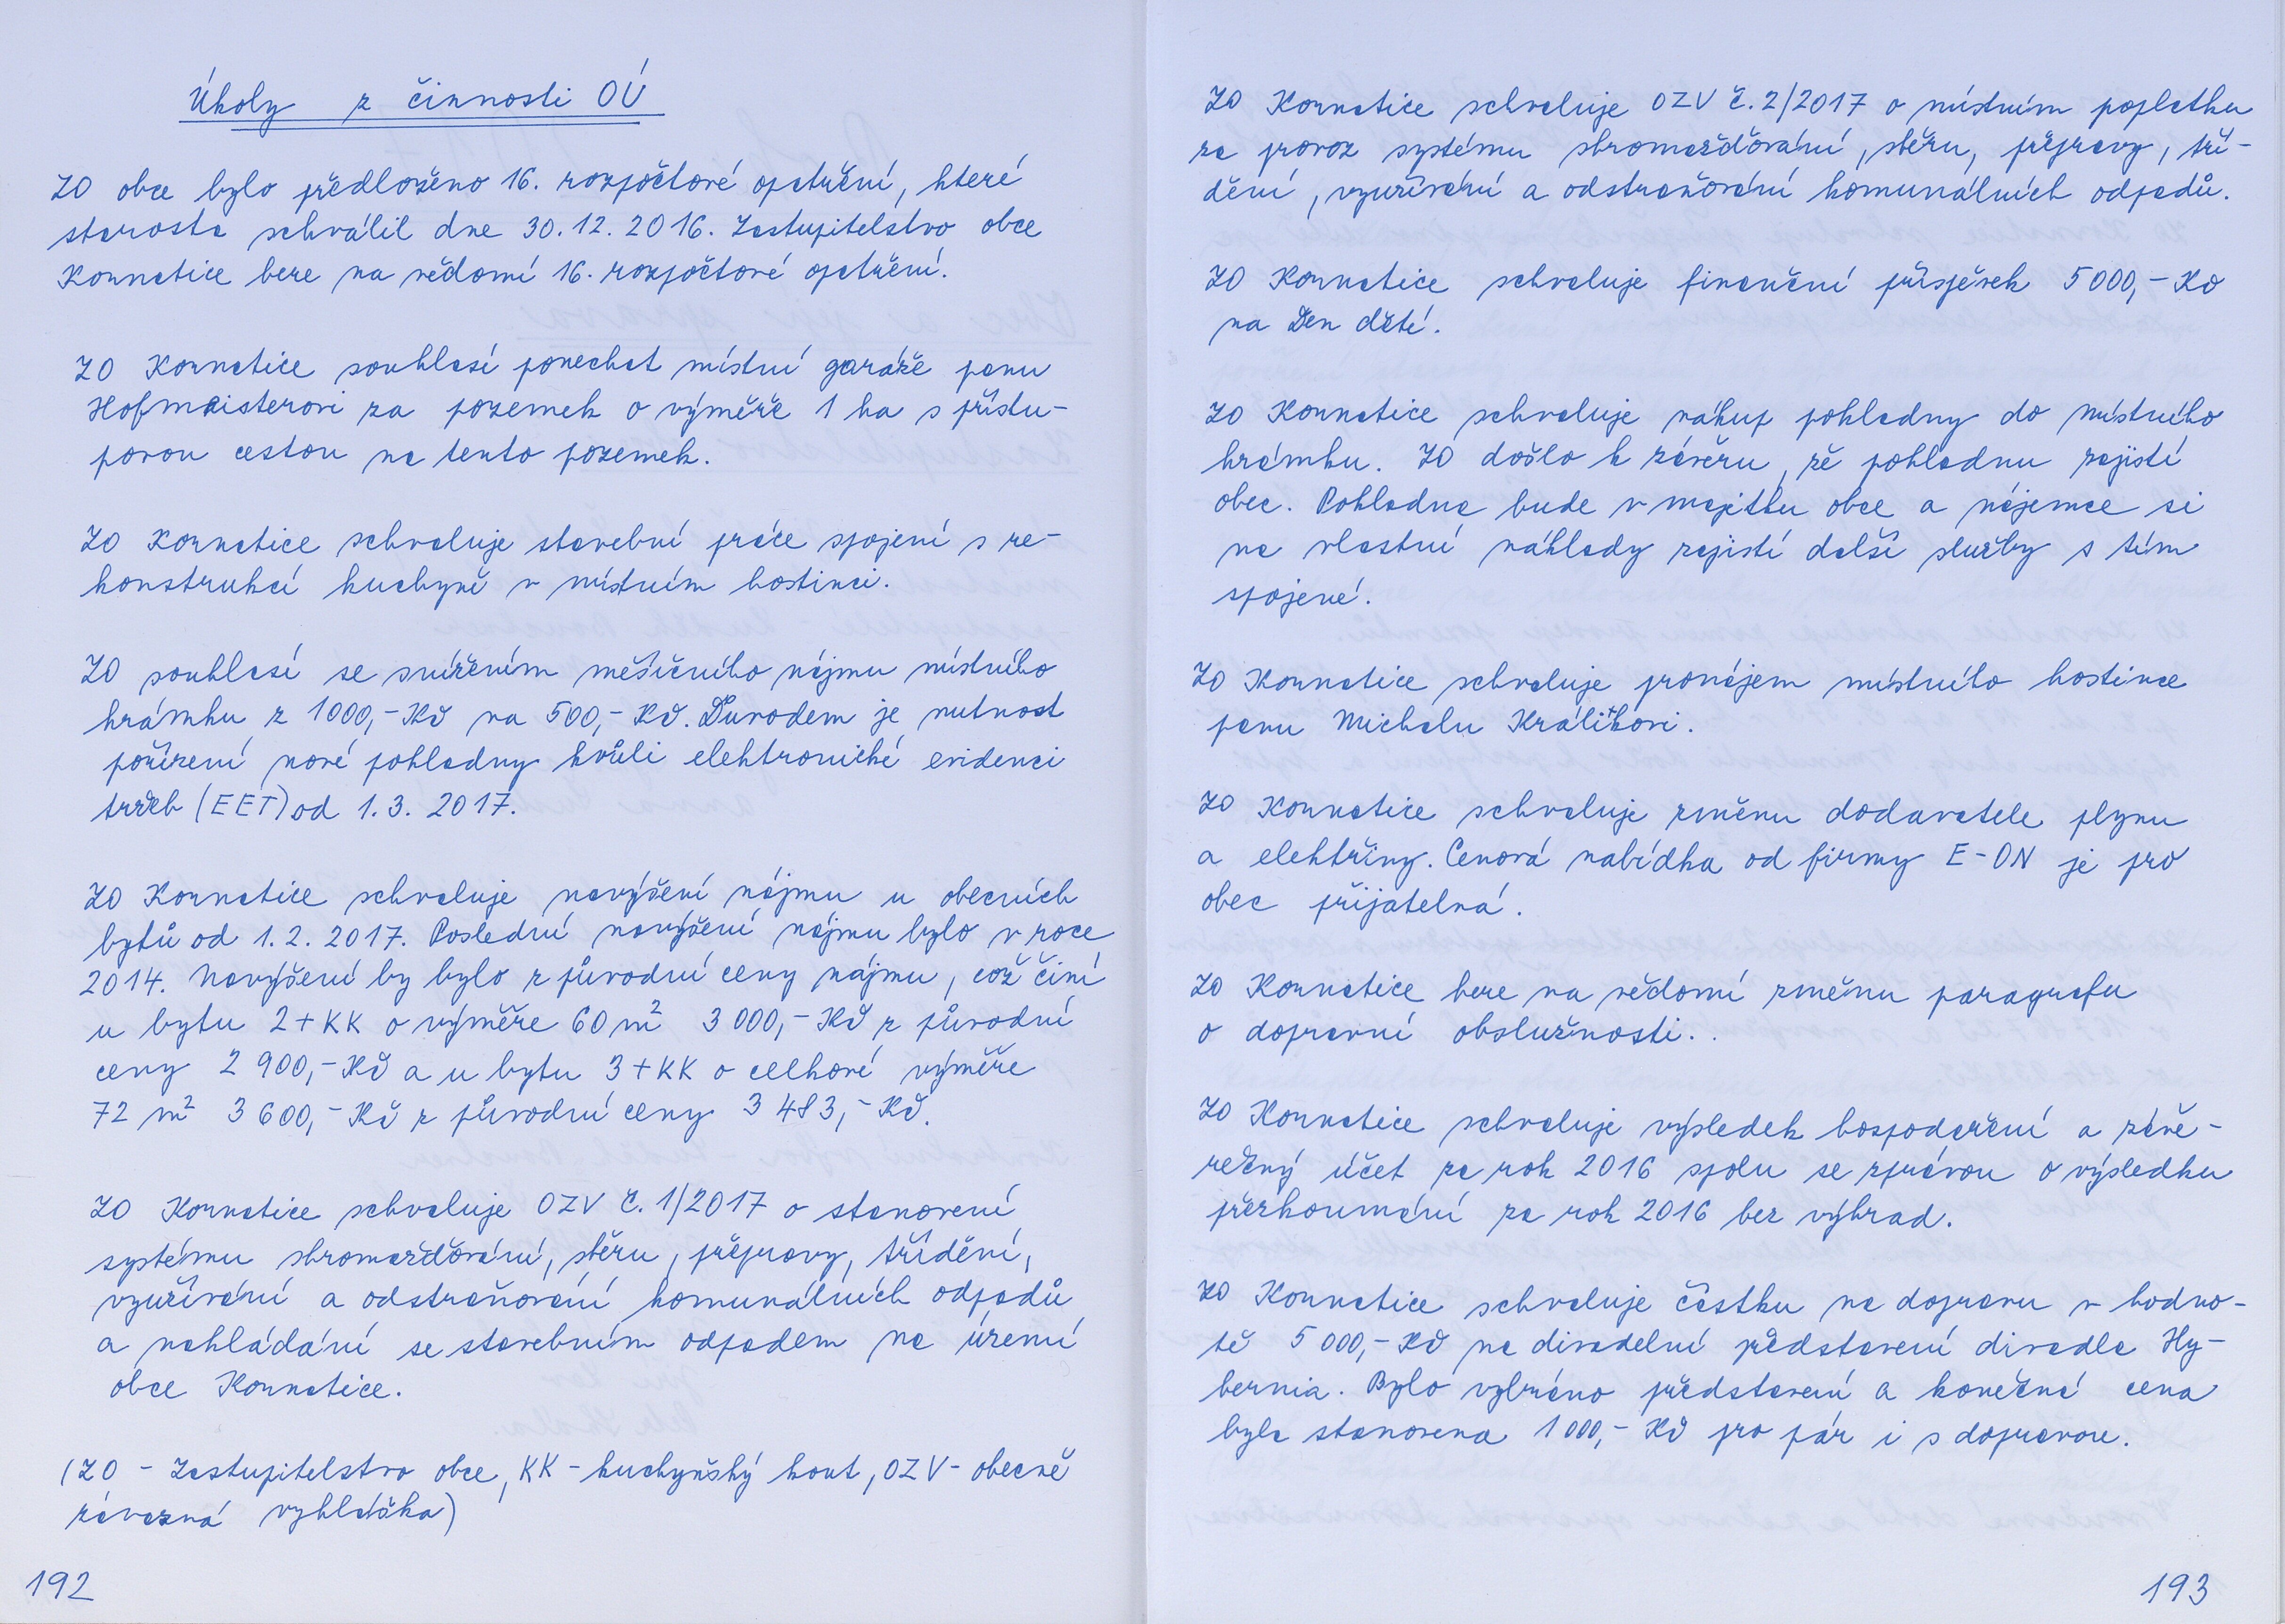 Úkoly z činnosti OÚ
ZO obce bylo předloženo 16. rozpočtové opatření, které
starosta schválil dne 30.12.2016. Zastupitelstvo obce
Kornatice bere na vědomí 16. rozpočtové opatření.
ZO Kornatice souhlasí ponechat místní garáže panu
Hofmeisterovi za pozemek o výměře 1 ha s přístu-
povou cestou na tento pozemek.
ZO Kornatice schvaluje stavební práce spojení s re-
konstrukcí kuchyně v místním hostinci.
ZO souhlasí se snížením měsíčního nájmu místního
krámku z 1000,- Kč na 500,- Kč. Důvodem je nutnost
pořízení nové pokladny kvůli elektronické evidenci
tržeb (EET) od 1.3. 2017.
ZO Kornatice schvaluje navýšení nájmu u obecních
bytů od 1.2. 2017. Poslední navýšení nájmu bylo v roce
2014. Navýšení by bylo z původní ceny nájmu, což činí
u bytu 2+KK o výměře 60 m² 3 000,- Kč z původní
ceny 2 900,- Kč a u bytu 3+KK o celkové výměře
72 m² 3 600,- Kč z původní ceny 3 483,- Kč.
ZO Kornatice schvaluje OZV č. 1/2017 o stanovení
systému shromažďování, sběru, přepravy, třídění,
využívání a odstraňování komunálních odpadů
a nakládání se stavebním odpadem na území
obce Kornatice.
(ZO - Zastupitelstvo obce, KK - kuchyňský kout, OZV - obecně
závazná vyhláška)
192
ZO Kornatice schvaluje OZV č. 2/2017 o místním poplatku
za provoz systému shromažďování, sběru, přepravy, tří-
dění, využívání a odstraňování komunálních odpadů.
ZO Kornatice schvaluje finanční příspěvek 5 000,- Kč
na Den dětí.
ZO Kornatice schvaluje nákup pokladny do místního
krámku. ZO došlo k závěru, že pokladnu zajistí
obec. Pokladna bude v majetku obce a nájemce si
na vlastní náklady zajistí další služby s tím
spojené.
ZO Kornatice schvaluje pronájem místního hostince
panu Michalu Králíkovi.
ZO Kornatice schvaluje změnu dodavatele plynu
a elektřiny. Cenová nabídka od firmy E-ON je pro
obec přijatelná.
ZO Kornatice bere na vědomí změnu paragrafu
o dopravní obslužnosti.
ZO Kornatice schvaluje výsledek hospodaření a závě-
rečný účet za rok 2016 spolu se zprávou o výsledku
přezkoumání za rok 2016 bez výhrad.
ZO Kornatice schvaluje částku na dopravu v hodno-
tě 5 000,- Kč na divadelní představení divadla Hy-
bernia. Bylo vybráno představení a konečná cena
byla stanovena 1 000,- Kč pro pár i s dopravou.
193